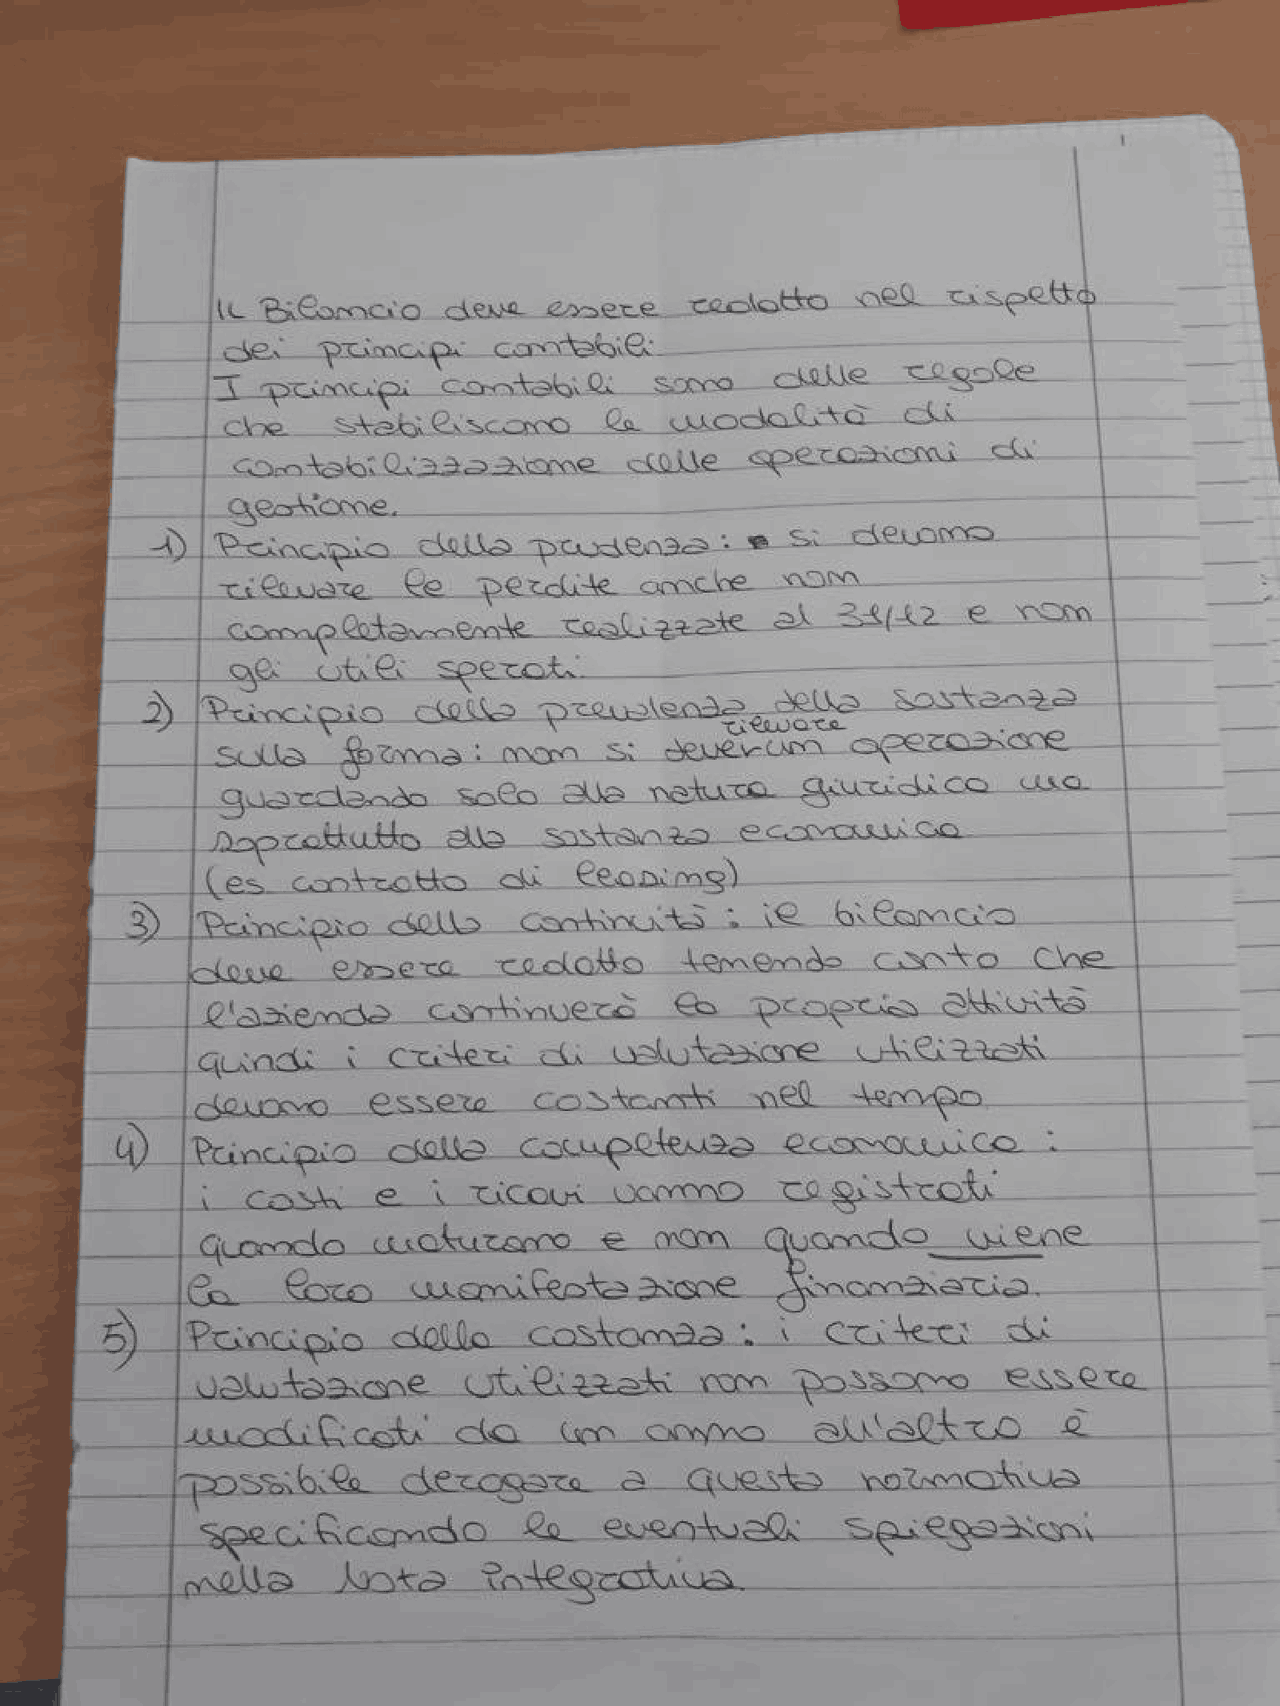 Il Bilancio deve essere redatto nel rispetto
dei principi contabili.
I principi contabili sono delle regole
che stabiliscono le modalità di
contabilizzazione delle operazioni di
gestione.
1) Principio della prudenza: si devono
rilevare le perdite anche non
completamente realizzate al 31/12 e non
gli utili sperati.
2) Principio della prevalenza della sostanza
rilevare
sulla forma: non si deve un operazione
guardando solo alla natura giuridica ma
soprattutto alla sostanza economica
(es contratto di leasing)
3) Principio della continuità: il bilancio
deve essere redatto tenendo conto che
l'azienda continuerà la propria attività
quindi i criteri di valutazione utilizzati
devono essere costanti nel tempo
4) Principio della competenza economica:
i costi e i ricavi vanno registrati
quando maturano e non quando viene
la loro manifestazione finanziaria.
5) Principio della costanza: i criteri di
valutazione utilizzati non possono essere
modificati da un anno all'altro è
possibile derogare a questa normativa
specificando le eventuali spiegazioni
nella Nota integrativa.